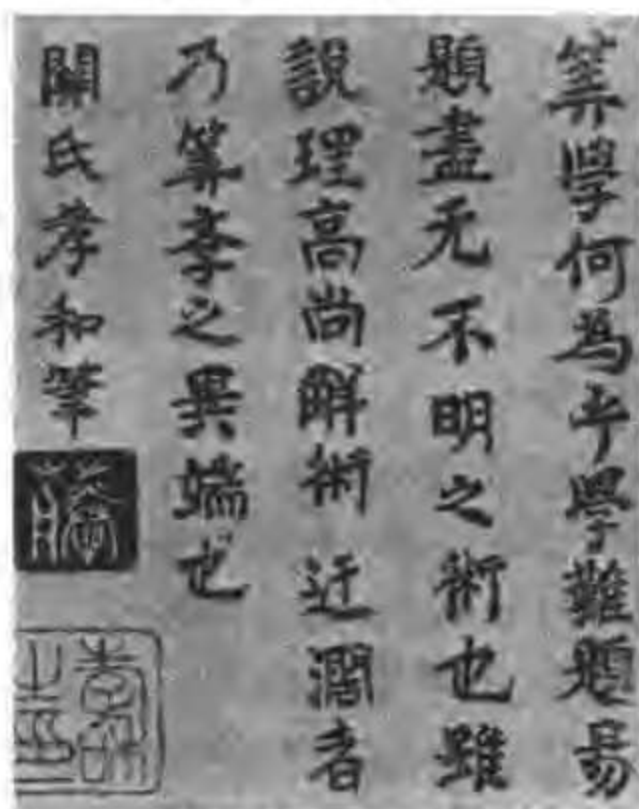 筭學何為乎學難題易
題盡无不明之術也雖
說理高尚觧術迂濶者
乃筭孝之異端也
關氏孝和筆
藤
孝和
之印